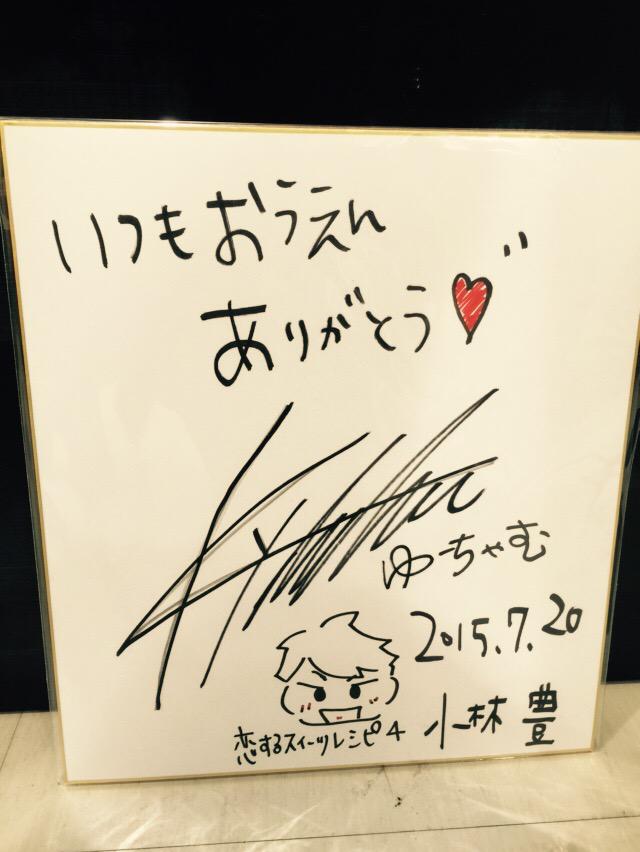 いつもおうえん
ありがとう
ゆーちゃむ
2015.7.20
恋するスイーツレシピ4
小林 豊